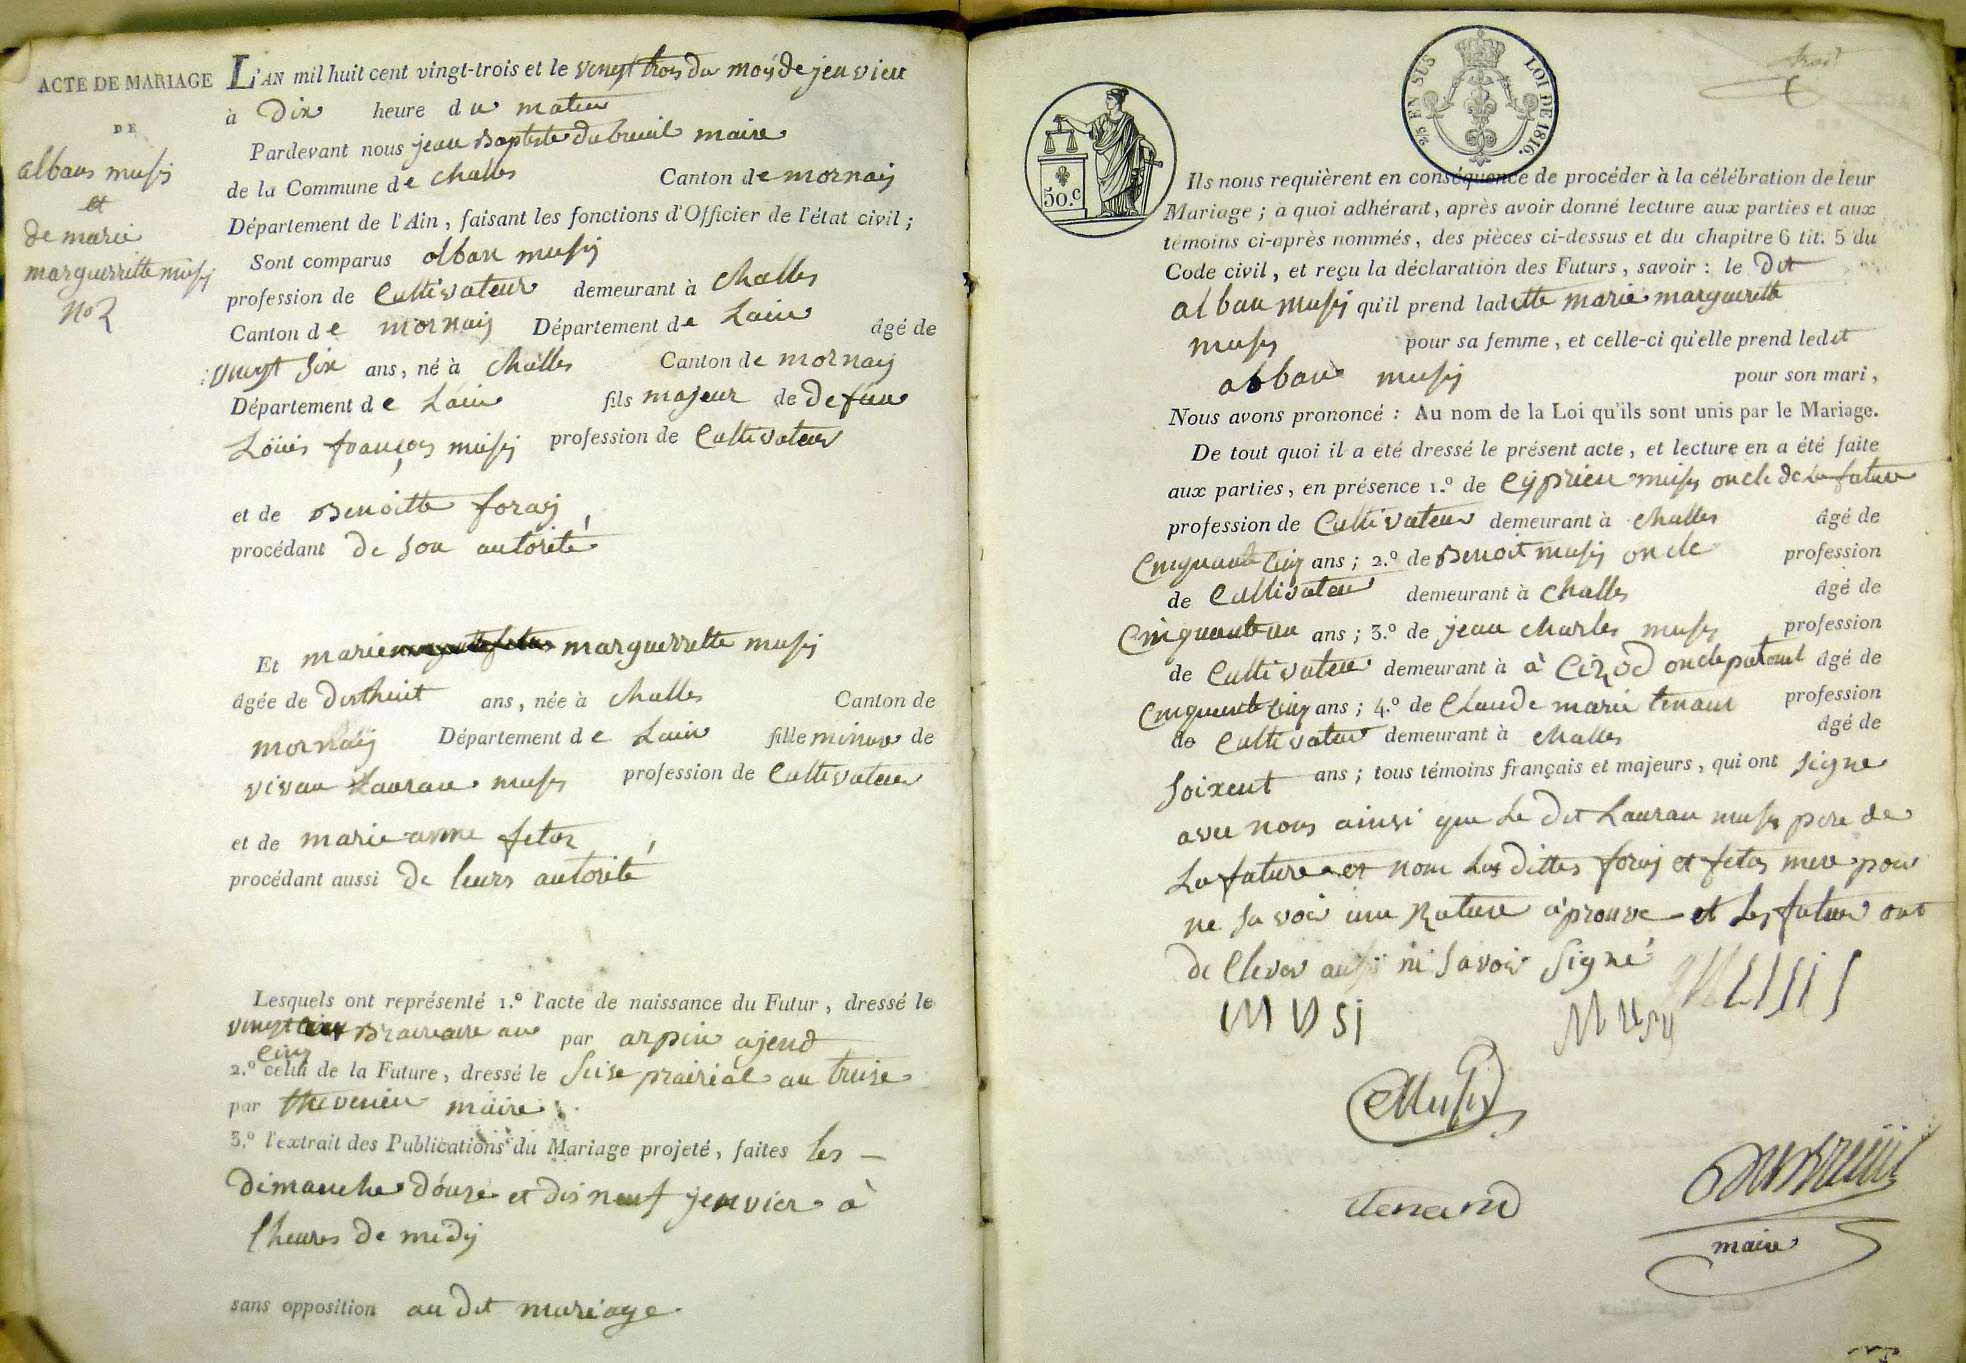 ACTE DE MARIAGE
DE
alban musy
et
de marie
marguerritte musy
No 2
L'AN mil huit cent vingt-trois et le vingt trois du moy de jenvier
à Dix heure du matin
Pardevant nous jean Baptiste dubreuil maire
de la Commune de challes Canton de mornay
Département de l'Ain, faisant les fonctions d'Officier de l'état civil;
Sont comparus alban musy
profession de Cultivateur demeurant à Challes
Canton de mornay Département de Lain âgé de
vingt six ans, né à Challes Canton de mornay
Département de Lain fils majeur de defun
Loüis françois musy profession de Cultivateur
et de Benoitte foray
procédant de son autorité
Et marie marguerrette musy
âgée de dixhuit ans, née à challes Canton de
mornay Département de Lain fille minure de
vivan Lauran musy profession de Cultivateur
et de marie anne fetas
procédant aussi de leurs autorité
Lesquels ont représenté 1.º l'acte de naissance du Futur, dressé le
vingt Brairiaire an par arpin ajend
cinq
2.º celui de la Future, dressé le seise prairiál an treise
par thevenin maire
3.º l'extrait des Publications du Mariage projeté, faites les
dimanche douze et dis neuf jenvier à
lheures de midy
sans opposition au dit mariage
50.c
2/5 EN SUS LOI DE 1816.
Ils nous requièrent en conséquence de procéder à la célébration de leur
Mariage; à quoi adhérant, après avoir donné lecture aux parties et aux
témoins ci-après nommés, des pièces ci-dessus et du chapitre 6 tit. 5 du
Code civil, et reçu la déclaration des Futurs, savoir: le Dit
alban musy qu'il prend laditte marie marguerette
musy pour sa femme, et celle-ci qu'elle prend ledit
alban musy pour son mari,
Nous avons prononcé: Au nom de la Loi qu'ils sont unis par le Mariage.
De tout quoi il a été dressé le présent acte, et lecture en a été faite
aux parties, en présence 1.º de Cÿprien musy oncle de La future
profession de Cultivateur demeurant à challes âgé de
Cinquante cinq ans; 2.º de Benoit musy oncle profession
de Cultivateur demeurant à Challes âgé de
Cinquante un ans; 3.º de jean charles musy profession
de Cultivateur demeurant à à Cizod oncle paternel âgé de
Cinquante cinq ans; 4.º de Claude marie tenan profession
de Cultivateur demeurant à challes âgé de
Soixent ans; tous témoins français et majeurs, qui ont signe
avec nous ainsi que Le dit Lauran musy pere de
La future et non Les dittes foray et fetas mere pour
ne savoir une Rature aprouve et Les futur ont
de Clerer aussi ni savoir signé
MVSI Musy
CMusy
tenand
Dubreuil
maire